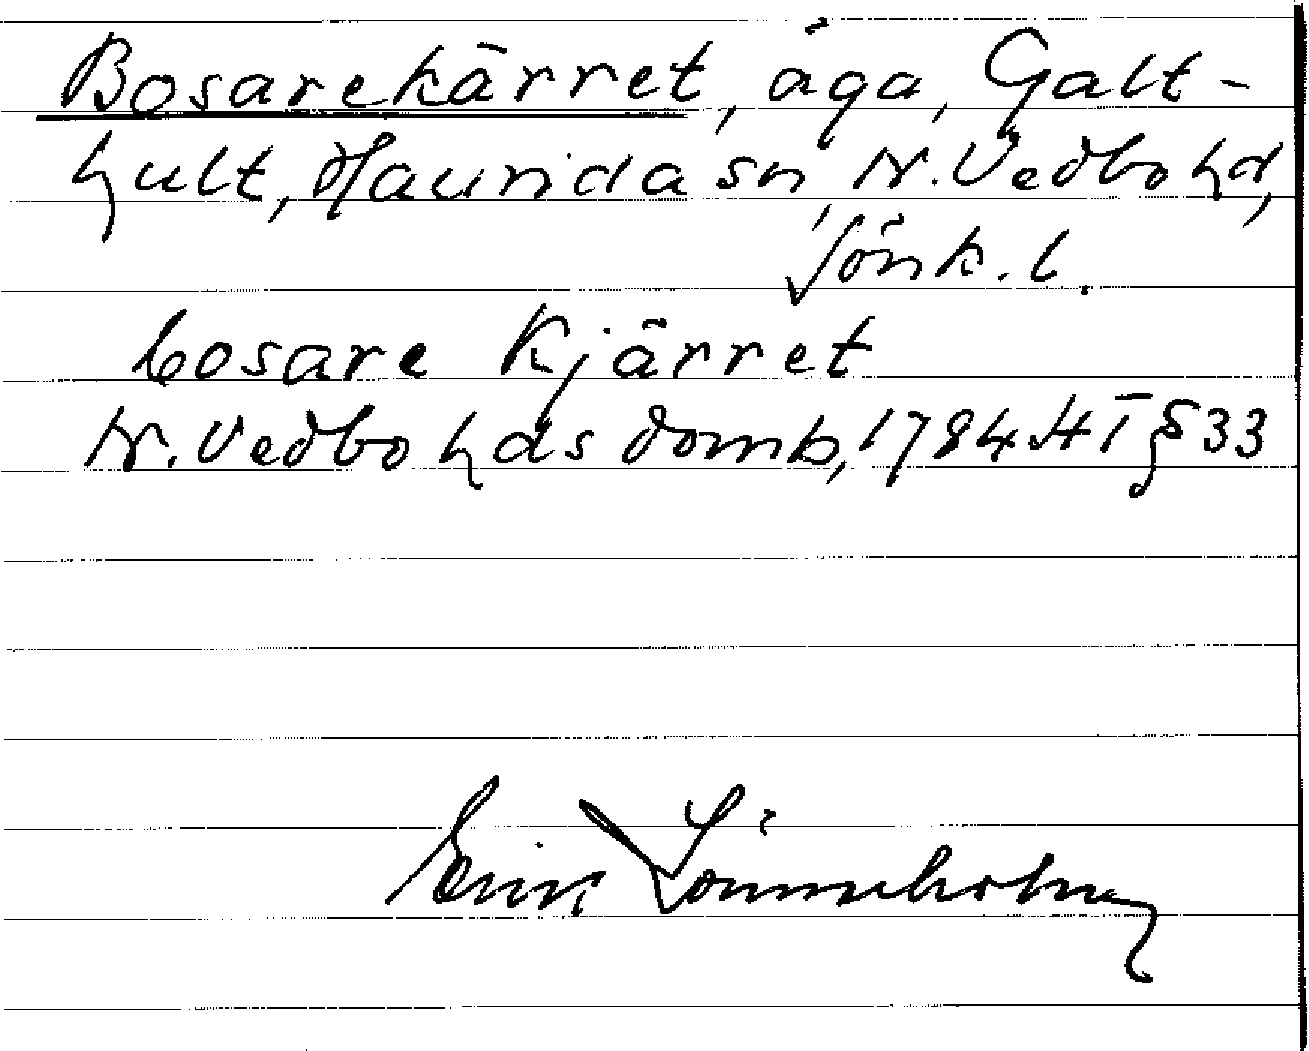 Bosarekärret, äga, Galt-
hult, Haurida sn, N. Vedbo hd,
Jönk. l.
bosare Kjärret
N. Vedbo hds domb, 1784 HT § 33
Erik Lönneholm